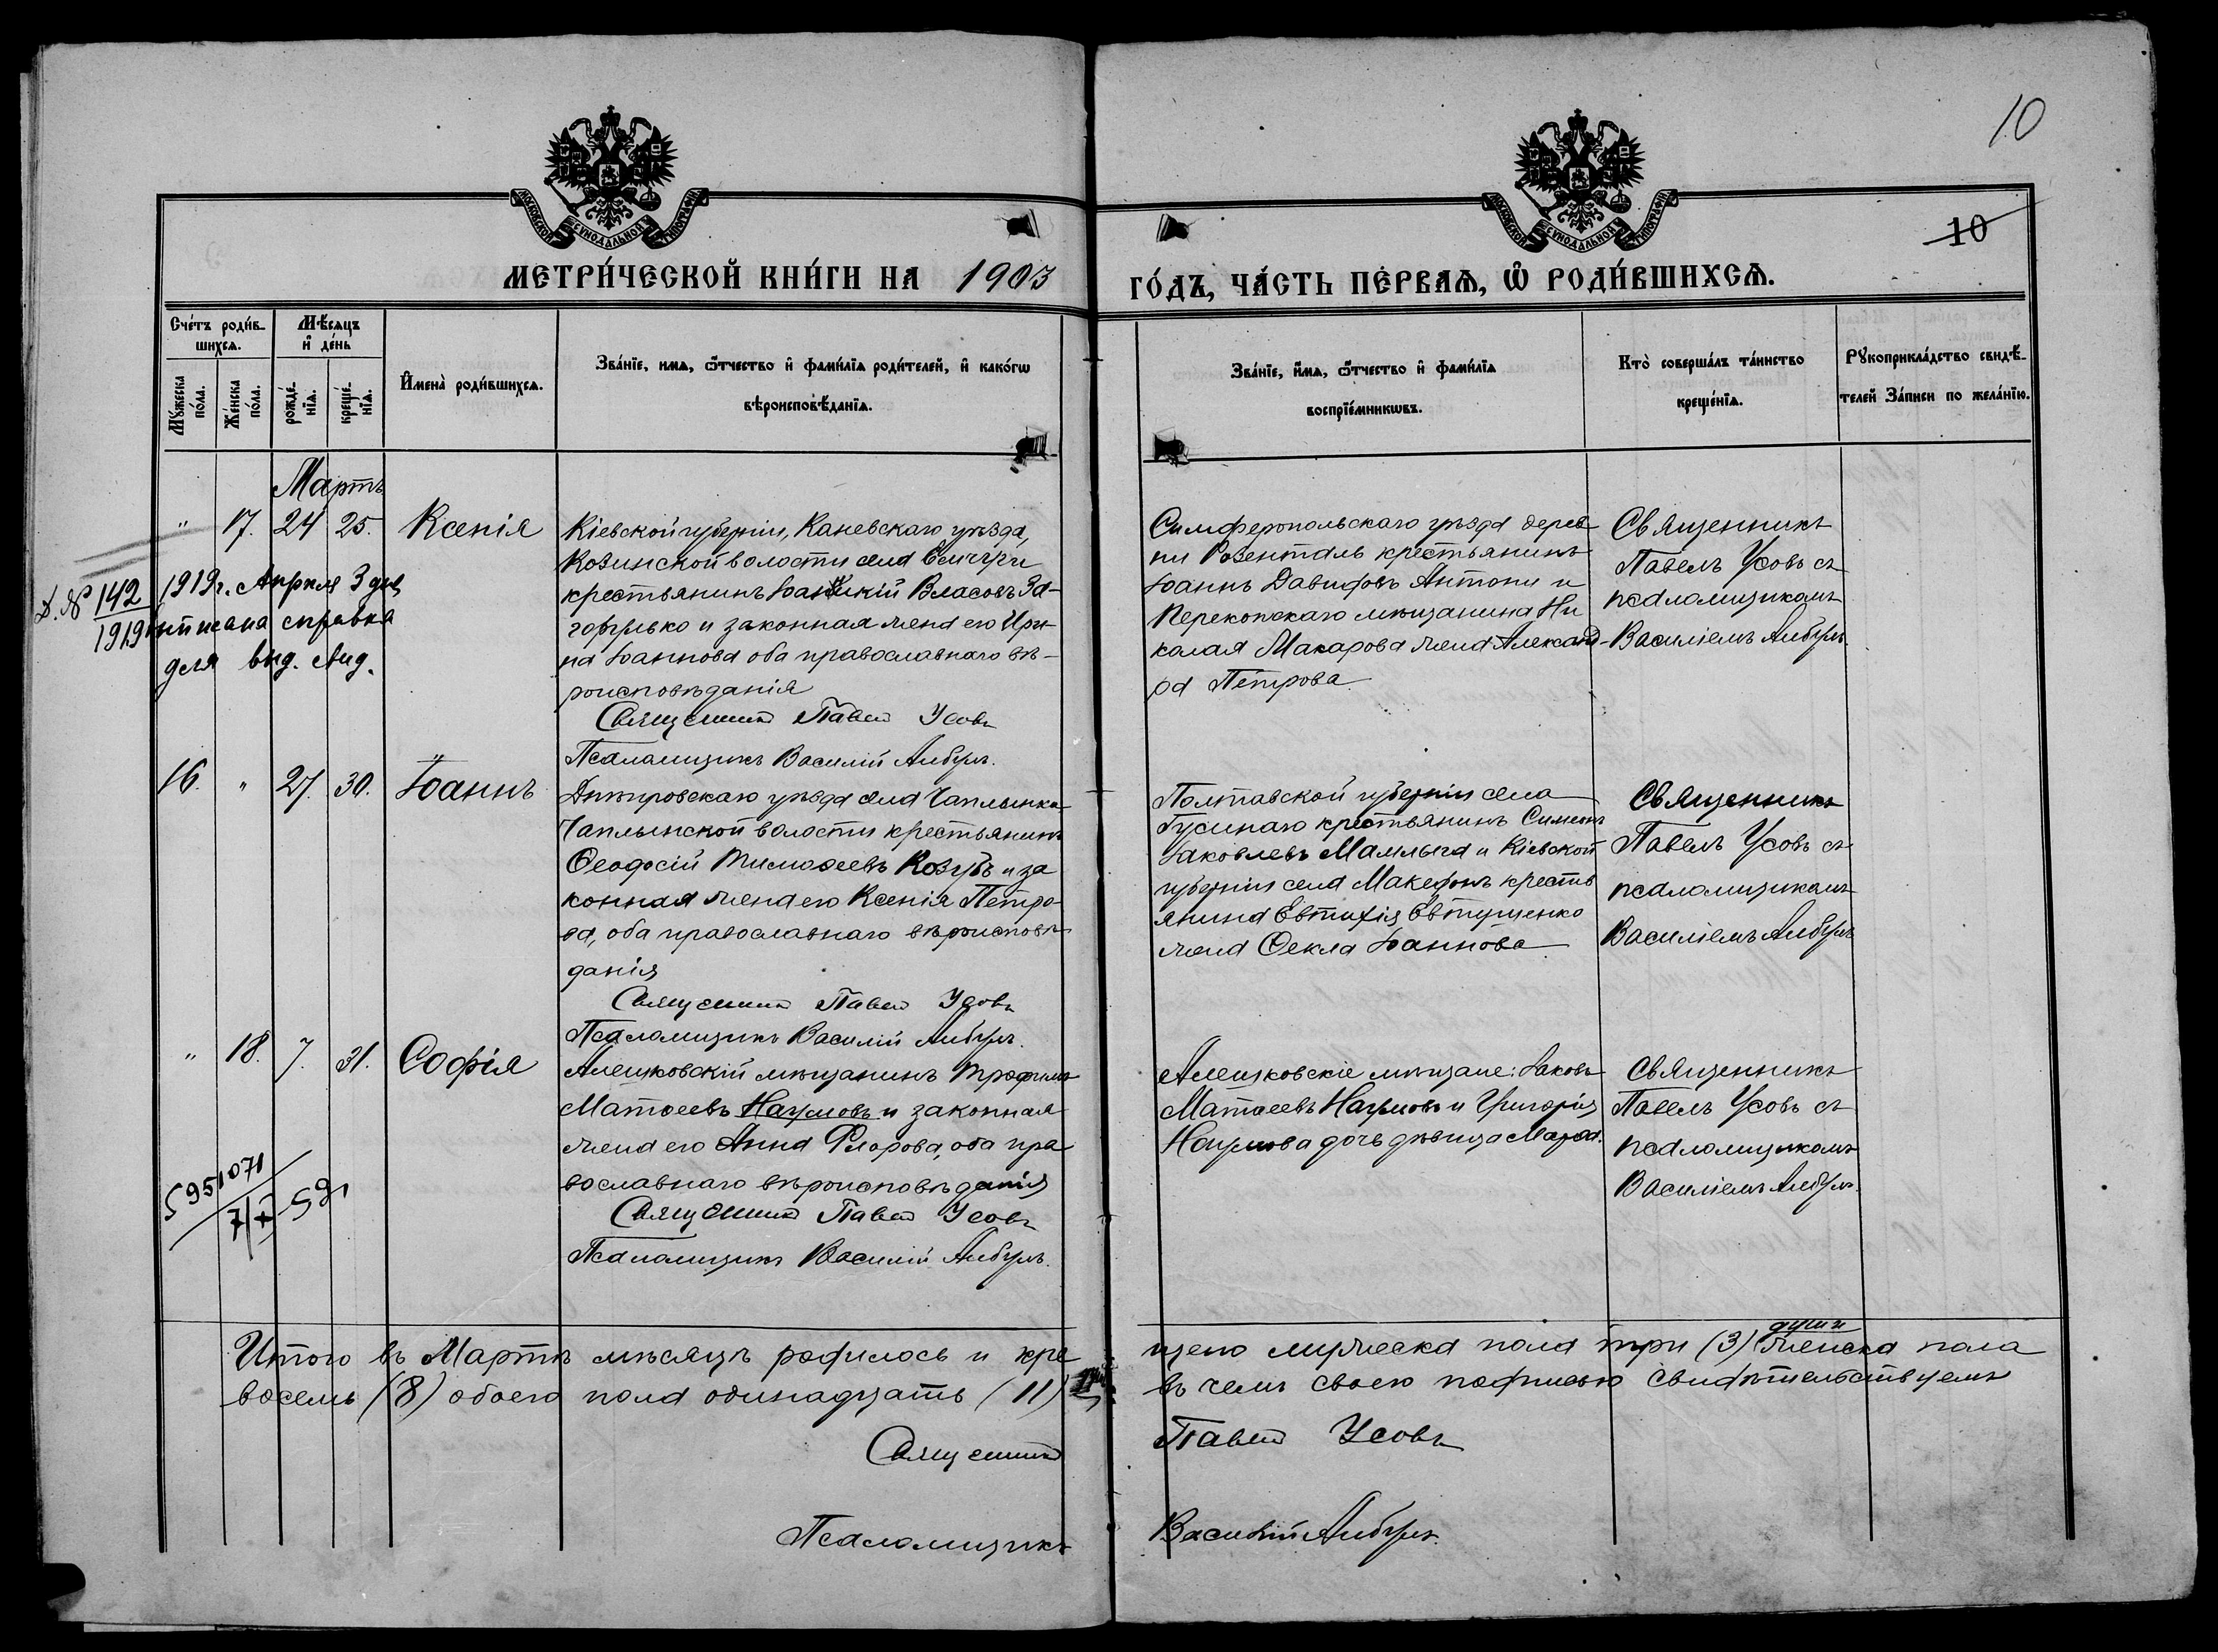 10
МОСКОВСКОЙ СѴНОДАЛЬНОЙ ТИПОГРАФІИ
МОСКОВСКОЙ СѴНОДАЛЬНОЙ ТИПОГРАФІИ
10
МЕТРИ́ЧЕСКОЙ КНИ́ГИ НА 1903
ГО́ДЪ, ЧА́СТЬ ПЕ́РВАѦ, Ѡ҆ РОДИ́ВШИХСѦ.
Сче́тъ роди́в-
шихсѧ.
Мѣ́сѧцъ
и҆ де́нь
Мꙋ́жеска
по́ла.
Же́нска
по́ла.
рожде́-
нїѧ.
креще́-
нїѧ.
И҆мена̀ роди́вшихсѧ.
Зва́нїе, имѧ, ѻ҆́тчество и҆ фами́лїѧ роди́телей, и҆ како́гѡ
вѣроисповѣ́данїѧ.
Зва́нїе, и҆́мѧ, ѻ҆́тчество и҆ фами́лїѧ
воспрїе́мникѡвъ.
Кто̀ соверша́лъ та́инство
креще́нїѧ.
Рꙋкоприкла́дство свидѣ́-
телей За́писи по жела́нїю.
Мартъ
" 17. 24 25. Ксенія
Кіевской губерніи, Каневскаго уѣзда,
Козинской волости села
крестьянинъ Іоанникій Власовъ За-
горулько и законная жена его Ири-
на Іоаннова оба православнаго вѣ-
роисповѣданія
Священникъ Павелъ Усовъ
Псаломщикъ Василій
Симферопольскаго уѣзда дерев-
ни Розенталь крестьянинъ
Іоаннъ Давидовъ Антони и
Перекопскаго мѣщанина Ни
колая Макарова жена Александ-
ра Петрова.
Священникъ
Павелъ Усовъ съ
псаломщикомъ
Василіемъ
Д. № 142
1919
1919 г. Апрѣля 3 дня
справка
для выд.
16. " 27. 30. Іоаннъ
Днѣпровскаго уѣзда села Чаплынка
Чаплынской волости крестьянинъ
Ѳеодосій Тимоѳеевъ Козубъ и за
конная жена его Ксенія Петро-
ва, оба православнаго вѣроисповѣ-
данія
Священникъ Павелъ Усовъ
Псаломщикъ Василій
Полтавской губерніи села
Гусинаго крестьянинъ Симеонъ
Іаковлевъ и Кіевской
губерніи села Македонъ кресть
янина Евтихія Евтушенко
жена Ѳекла Іоаннова.
Священникъ
Павелъ Усовъ съ
псаломщикомъ
Василіемъ
" 18. 7. 31. Софія
Алешковскій мѣщанинъ Трофимъ
Матѳеевъ Наумовъ и законная
жена его Анна Флорова, оба пра
вославнаго вѣроисповѣданія
Священникъ Павелъ Усовъ
Псаломщикъ Василій
Алешковскіе мѣщане: Іаковъ
Матѳеевъ Наумовъ и Григорія
Наумова дочь дѣвица
Священникъ
Павелъ Усовъ съ
псаломщикомъ
Василіемъ
5951071
Итого въ Мартѣ мѣсяцѣ родилось и кре
щено мужеска пола три (3) души женска пола
восемь (8) обоего пола одинадцать (11)
въ чемъ своею подписью свидѣтельствуемъ
Священникъ
Павелъ Усовъ
Псаломщикъ
Василій